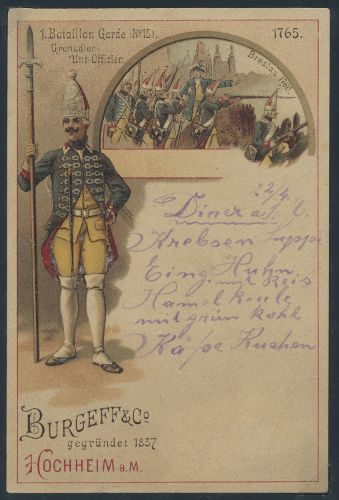 1. Bataillon Garde (No 15).
Grenadier
Unt. Offizier.
1765.
Breslau 1760.
22/4.
Diner
Krebsen Suppe
Eing Huhn
mit Reis
Hamelkeule
mit grün kohl
Käse Kuchen
BURGEFF & Co
gegründet 1837
HOCHHEIM a. M.